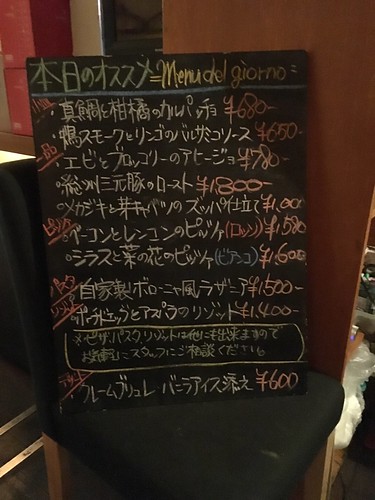 本日のオススメ =Menu del giorno=
・真鯛と柑橘のカルパッチョ ¥680-
・鴨スモークとリンゴのバルサミコソース ¥650-
一品 ・エビとブロッコリーのアヒージョ ¥780-
・総州三元豚のロースト ¥1.800-
・メカジキと芽キャベツのズッパ仕立て ¥1.000
ピッツァ ・ベーコンとレンコンのピッツァ(ロッソ) ¥1.580
・シラスと菜の花のピッツァ(ビアンコ) ¥1.600
パスタ 自家製ボローニャ風ラザニア ¥1,500-
リゾット ポーチドエッグとアスパラのリゾット ¥1.400-
※ピザ、パスタ、リゾットは他にも出来ますので
お気軽にスタッフにご相談ください。
クレームブリュレ・バニラアイス添え ¥600